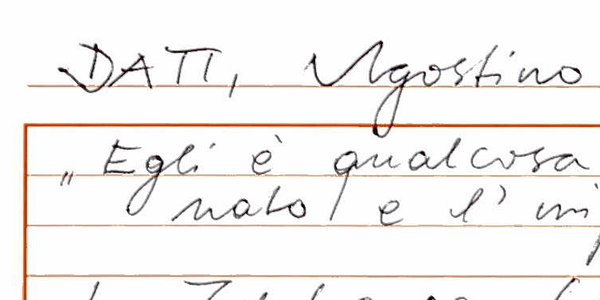 DATI, Agostino
„Egli è qualcosa
nato e l'